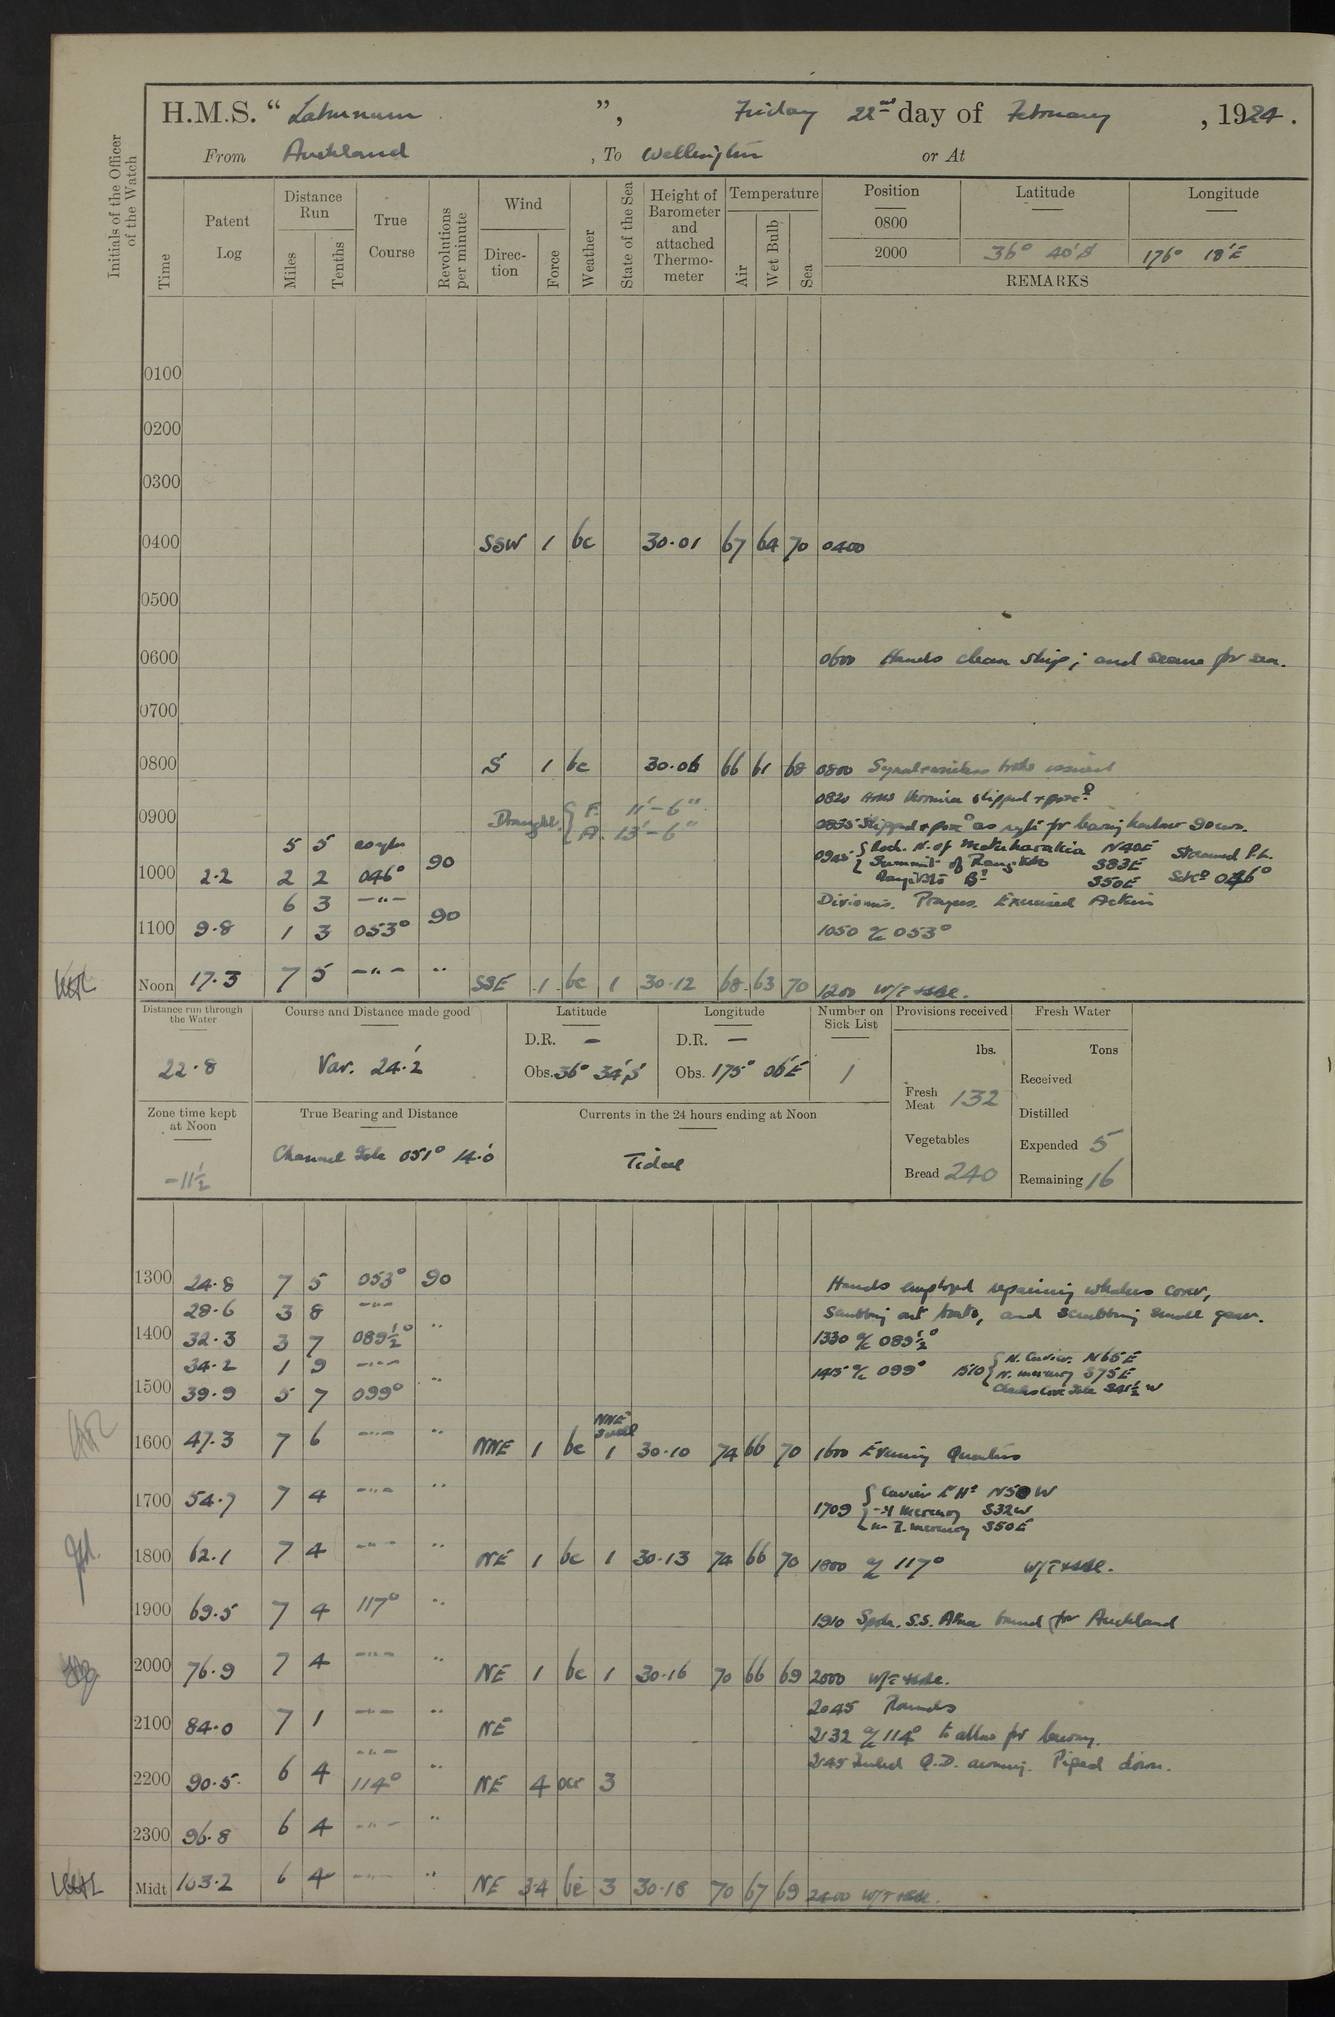 H.M.S. “ Laburnum ”, Friday 22nd day of February, 1924.
From Auckland, To Wellington or At
Initials of the Officer of the Watch
Time
Patent Log
Distance Run
Miles
Tenths
True Course
Revolutions per minute
Wind
Direction
Force
Weather
State of the Sea
Height of Barometer and attached Thermometer
Temperature
Air
Wet Bulb
Sea
Position Latitude Longitude
0800
2000 36° 40' S 176° 18' E
REMARKS
0100
0200
0300
0400 SSW 1 bc 30.01 67 64 70 0400
0500
0600 0600 Hands clean ship; and secure for sea.
0700
0800 S 1 bc 30.06 66 61 68 0800
0820 HMS Veronica slipped + proc?
0900 Draught { F. 11'-6"
A. 13'-6"
0835 Slipped + proc? as req? for leaving harbour 90 revs.
5 5
0945 { Rock. N. of Motukorakia N40E Streamed P.L.
Summit of Rangitoto S83E
Rangitoto B? S50E S/C? 046°
1000 2.2 2 2 046° 90
6 3 —"— Divisions. Prayers. Exercised Action
1100 9.8 1 3 053° 90 1050 a/c 053°
Noon 17.3 7 5 —"— " SSE 1 bc 1 30.12 68 63 70 1200 W/T + S&L.
Distance run through the Water
22.8
Course and Distance made good
Var. 24'.2
Latitude
D.R. —
Obs. 36° 34' S
Longitude
D.R. —
Obs. 175° 06' E
Number on Sick List
1
Provisions received
lbs.
Fresh Meat 132
Vegetables
Bread 240
Fresh Water
Tons
Received
Distilled
Expended 5
Remaining 16
Zone time kept at Noon
-11½
True Bearing and Distance
Channel Isle 051° 14'.0
Currents in the 24 hours ending at Noon
Tidal
1300 24.8 7 5 053° 90 Hands employed repairing whalers cover,
28.6 3 8 —"— scrubbing out boats, and scrubbing small gear.
1400 32.3 3 7 089½° " 1330 a/c 089½°
34.2 1 9 —"— 1415 a/c 099° 1510 { N. Cuvier. N65E
N. Mercury S75E
S41½W
1500 39.9 5 7 099° "
1600 47.3 7 6 —"— " NNE 1 bc NNE Swell 1 30.10 74 66 70 1600 Evening Quarters
1700 54.7 7 4 —"— " 1709 { Cuvier Lt Ho N50W
Mercury S32W
Mercury S50E
1800 62.1 7 4 —"— " NE 1 bc 1 30.13 74 66 70 1800 a/c 117° W/T + S&L.
1900 69.5 7 4 117° " 1910 Spoke S.S. bound for Auckland
2000 76.9 7 4 —"— " NE 1 bc 1 30.16 70 66 69 2000 W/T + S&L.
2045 Rounds
2100 84.0 7 1 —"— " NE 2132 a/c 114° to allow for leeway.
—"— 2145 Furled Q.D. awning. Piped down.
2200 90.5 6 4 114° " NE 4 ocr 3
2300 96.8 6 4 —"— "
Midt 103.2 6 4 —"— " NE 3.4 bc 3 30.18 70 67 69 2400 W/T + S&L.